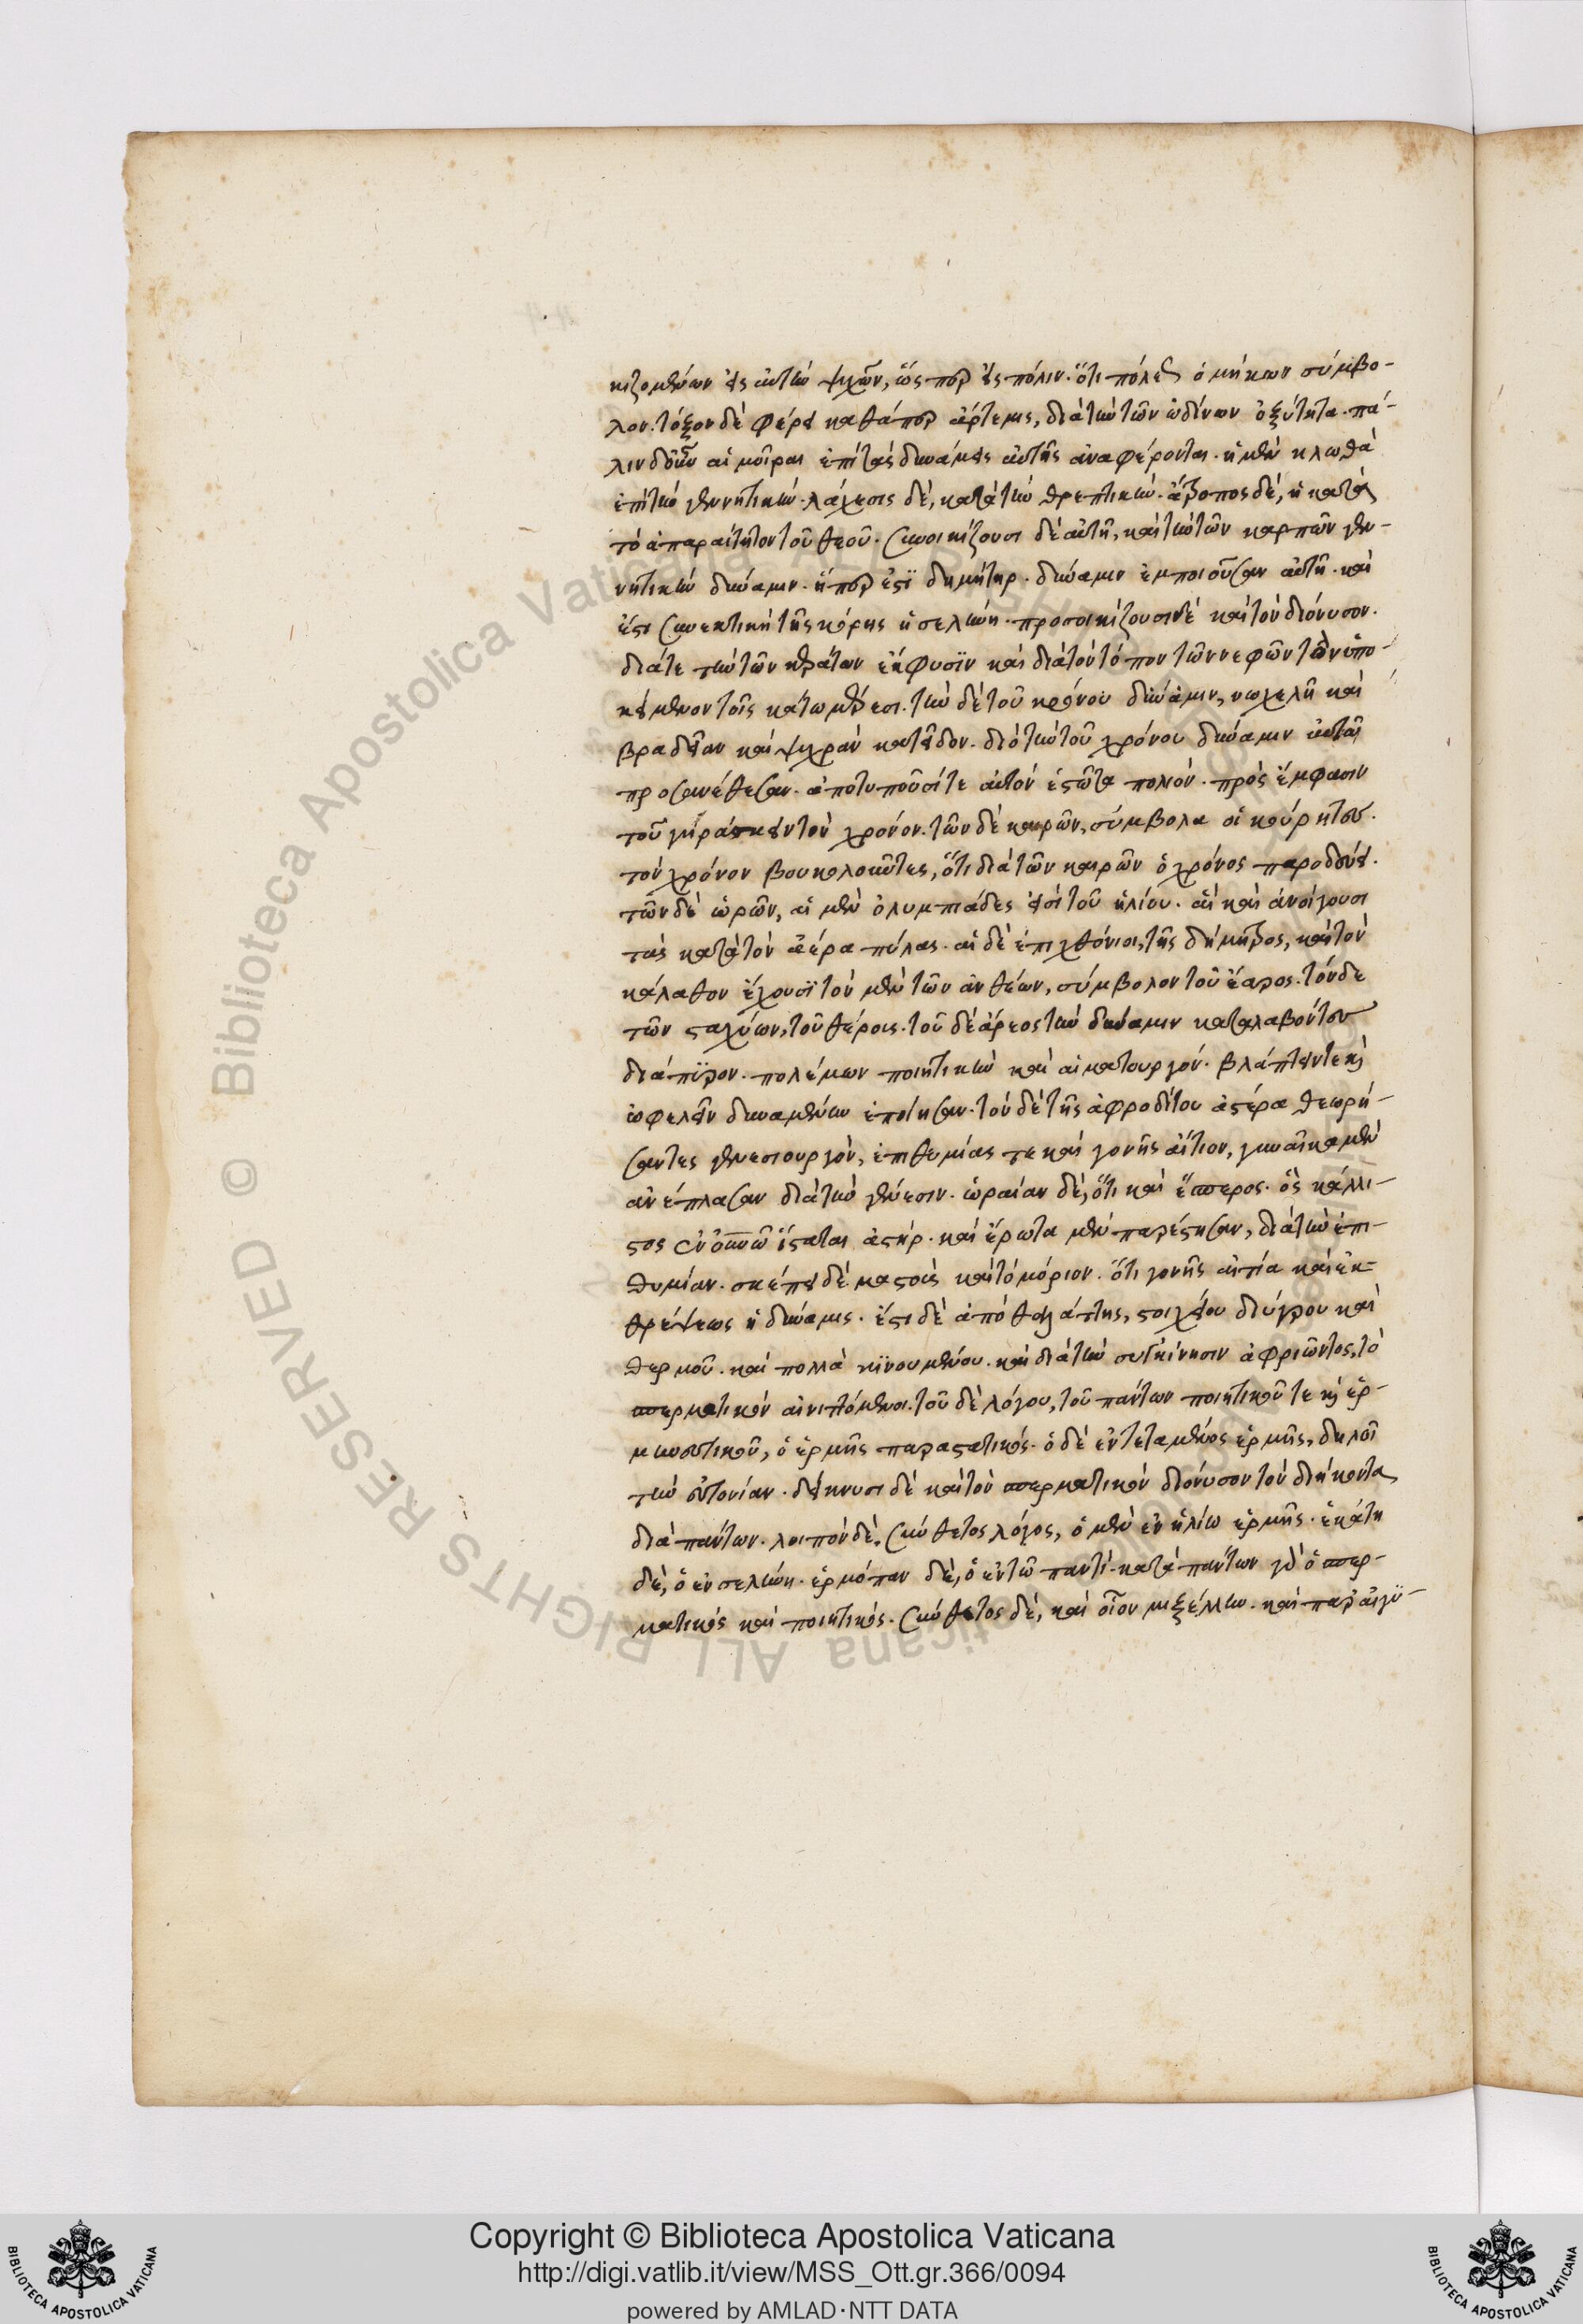 κιζομένων εἰς αὐτὴν ψυχῶν, ὥσπερ εἰς πόλιν. ὅτι πόλεως ὁ μήκων σύμβο-
λον. τόξον δὲ φέρει καθάπερ ἄρτεμις, διὰ τὴν τῶν ὠδίνων ὀξύτητα. πά-
λιν δ' οὖν αἱ μοῖραι ἐπὶ τὰς δυνάμεις αὐτῆς ἀναφέρονται. ἡ μὲν κλωθὼ
ἐπὶ τὴν γεννητικήν. λάχεσις δὲ, κατὰ τὴν θρεπτικήν. ἄτροπος δὲ, ἡ κατὰ
τὸ ἀπαραίτητον τοῦ θεοῦ. συνοικίζουσι δὲ αὐτῇ, καὶ τὴν τῶν καρπῶν γεν-
νητικὴν δύναμιν. ἥπερ ἐστὶ δημήτηρ. δύναμιν ἐμποιοῦσαν αὐτῇ. καὶ
ἔστι συνεκτικὴ τῆς κόρης ἡ σελήνη. προσοικίζουσι δὲ καὶ τὸν διόνυσον.
διά τε τὴν τῶν κεράτων ἔκφυσιν καὶ διὰ τὸν τόπον τῶν νεφῶν τὸν ὑπο-
κείμενον τοῖς κάτω μέρεσι. τὴν δὲ τοῦ κρόνου δύναμιν, νωχελῆ καὶ
βραδεῖαν καὶ ψυχρὰν κατεῖδον. διὸ τὴν τοῦ χρόνου δύναμιν αὐτῷ
προσανέθεσαν. ἀποτυποῦσί τε αὐτὸν ἑστῶτα πολιόν. πρὸς ἔμφασιν
τοῦ γηράσκειν τὸν χρόνον. τῶν δὲ καιρῶν, σύμβολα οἱ κούρητες.
τὸν χρόνον βουκολοῦντες, ὅτι διὰ τῶν καιρῶν ὁ χρόνος παροδεύει.
τῶν δὲ ὡρῶν, αἱ μὲν ὀλυμπιάδες εἰσὶ τοῦ ἡλίου. αἳ καὶ ἀνοίγουσι
τὰς κατὰ τὸν ἀέρα πύλας. αἱ δὲ ἐπιχθόνιοι, τῆς δήμητρος, καὶ τὸν
κάλαθον ἔχουσι τὸν μὲν τῶν ἀνθέων, σύμβολον τοῦ ἔαρος. τὸν δὲ
τῶν σταχύων, τοῦ θέρους. τοῦ δὲ ἄρεος τὴν δύναμιν καταλαβόντες
διάπυρον. πολέμων ποιητικὴν καὶ αἱματουργόν. βλάπτειν τε καὶ
ὠφελεῖν δυναμένην ἐποίησαν. τὸν δὲ τῆς ἀφροδίτου ἀστέρα θεωρή-
σαντες γενεσιουργόν, ἐπιθυμίας τε καὶ γονῆς αἴτιον, γυναῖκα μὲν
ἀνέπλασαν διὰ τὴν γένεσιν. ὡραίαν δὲ, ὅτι καὶ ἕσπερος. ὃς κάλλι-
στος ἐν οὐνῷ ἵσταται ἀστήρ. καὶ ἔρωτα μὲν παρέστησαν, διὰ τὴν ἐπι-
θυμίαν. σκέπει δὲ μαστοὺς καὶ τὸ μόριον. ὅτι γονῆς αἰτία καὶ ἐκ-
θρέψεως ἡ δύναμις. ἔστι δὲ ἀπὸ θαλάττης, στοιχείου διύγρου καὶ
θερμοῦ. καὶ πολλὰ κινουμένου. καὶ διὰ τὴν συγκίνησιν ἀφριῶντος, τὸ
σπερματικὸν αἰνιττόμενοι. τοῦ δὲ λόγου, τοῦ πάντων ποιητικοῦ τε καὶ ἑρ-
μηνευτικοῦ, ὁ ἑρμῆς παραστατικός. ὁ δὲ ἐντεταμένος ἑρμῆς, δηλοῖ
τὴν εὐτονίαν. δείκνυσι δὲ καὶ τὸν σπερματικὸν διόνυσον τὸν διήκοντα
διὰ πάντων. λοιπὸν δὲ, σύνθετος λόγος, ὁ μὲν ἐν ἡλίῳ ἑρμῆς. ἑκάτη
δὲ, ὁ ἐν σελήνῃ. ἑρμόπαν δὲ, ὁ ἐν τῷ παντί. κατὰ πάντων γὰρ ὁ σπερ-
ματικὸς καὶ ποιητικός. σύνθετος δὲ, καὶ οἷον μιξέλλην. καὶ παρ' αἰγυ-
Copyright © Biblioteca Apostolica Vaticana
http://digi.vatlib.it/view/MSS_Ott.gr.366/0094
powered by AMLAD·NTT DATA
BIBLIOTECA APOSTOLICA VATICANA
BIBLIOTECA APOSTOLICA VATICANA
© Biblioteca Apostolica Vaticana ALL RIGHTS RESERVED